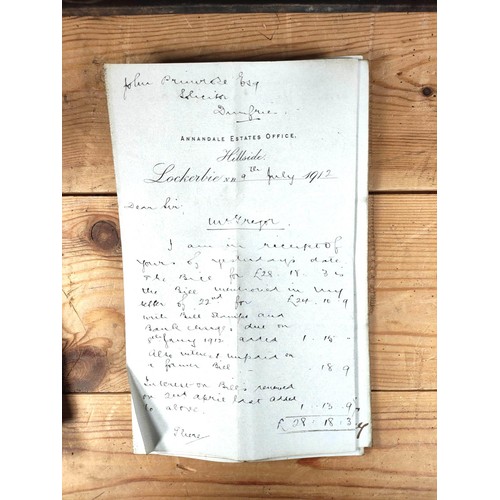 John Primrose Esq
Solicitor
Dumfries.
ANNANDALE ESTATES OFFICE.
Hillside.
Lockerbie N.B. 9th July 1912
Dear Sir,
McGregor.
I am in receipt of
yours of yesterdays date
The Bill for £28. 18. 3 is
the Bill mentioned in my
letter of 22nd for £24. 10. 9
with Bill Stamps and
Bank charges due on
Jany 1912 added 1. 15. "
Also interest unpaid on
a former Bill - 18 9
Interest on Bills renewed
on 2nd April last added
to above. 1. 13. 9
£ 28. 18. 3